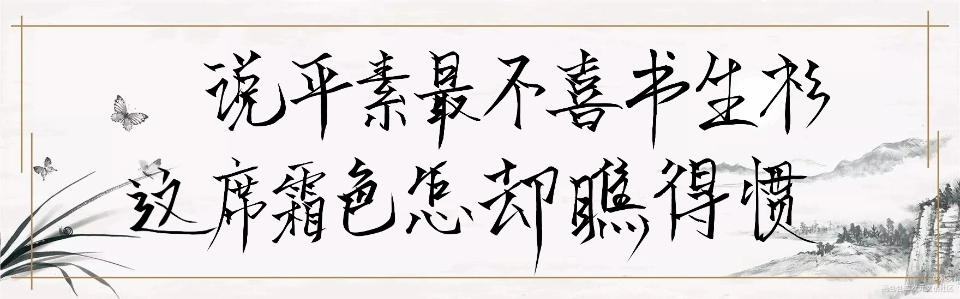 说平素最不喜书生衫
这席霜色怎却瞧得惯